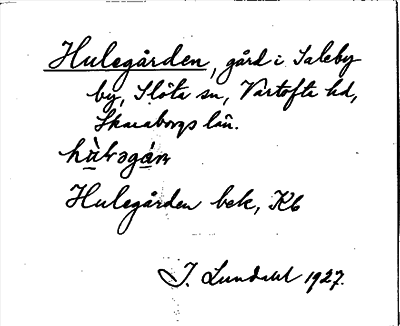 Hulegården, gård i Saleby
by, Slöta sn, Vartofta hd,
Skaraborgs län.
Hulegården bek, Kb
J. Lundahl 1927.